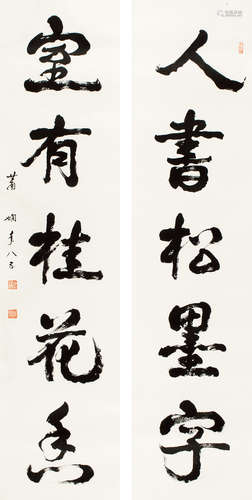 人書松墨字
室有桂花香
蕭嫻年八十